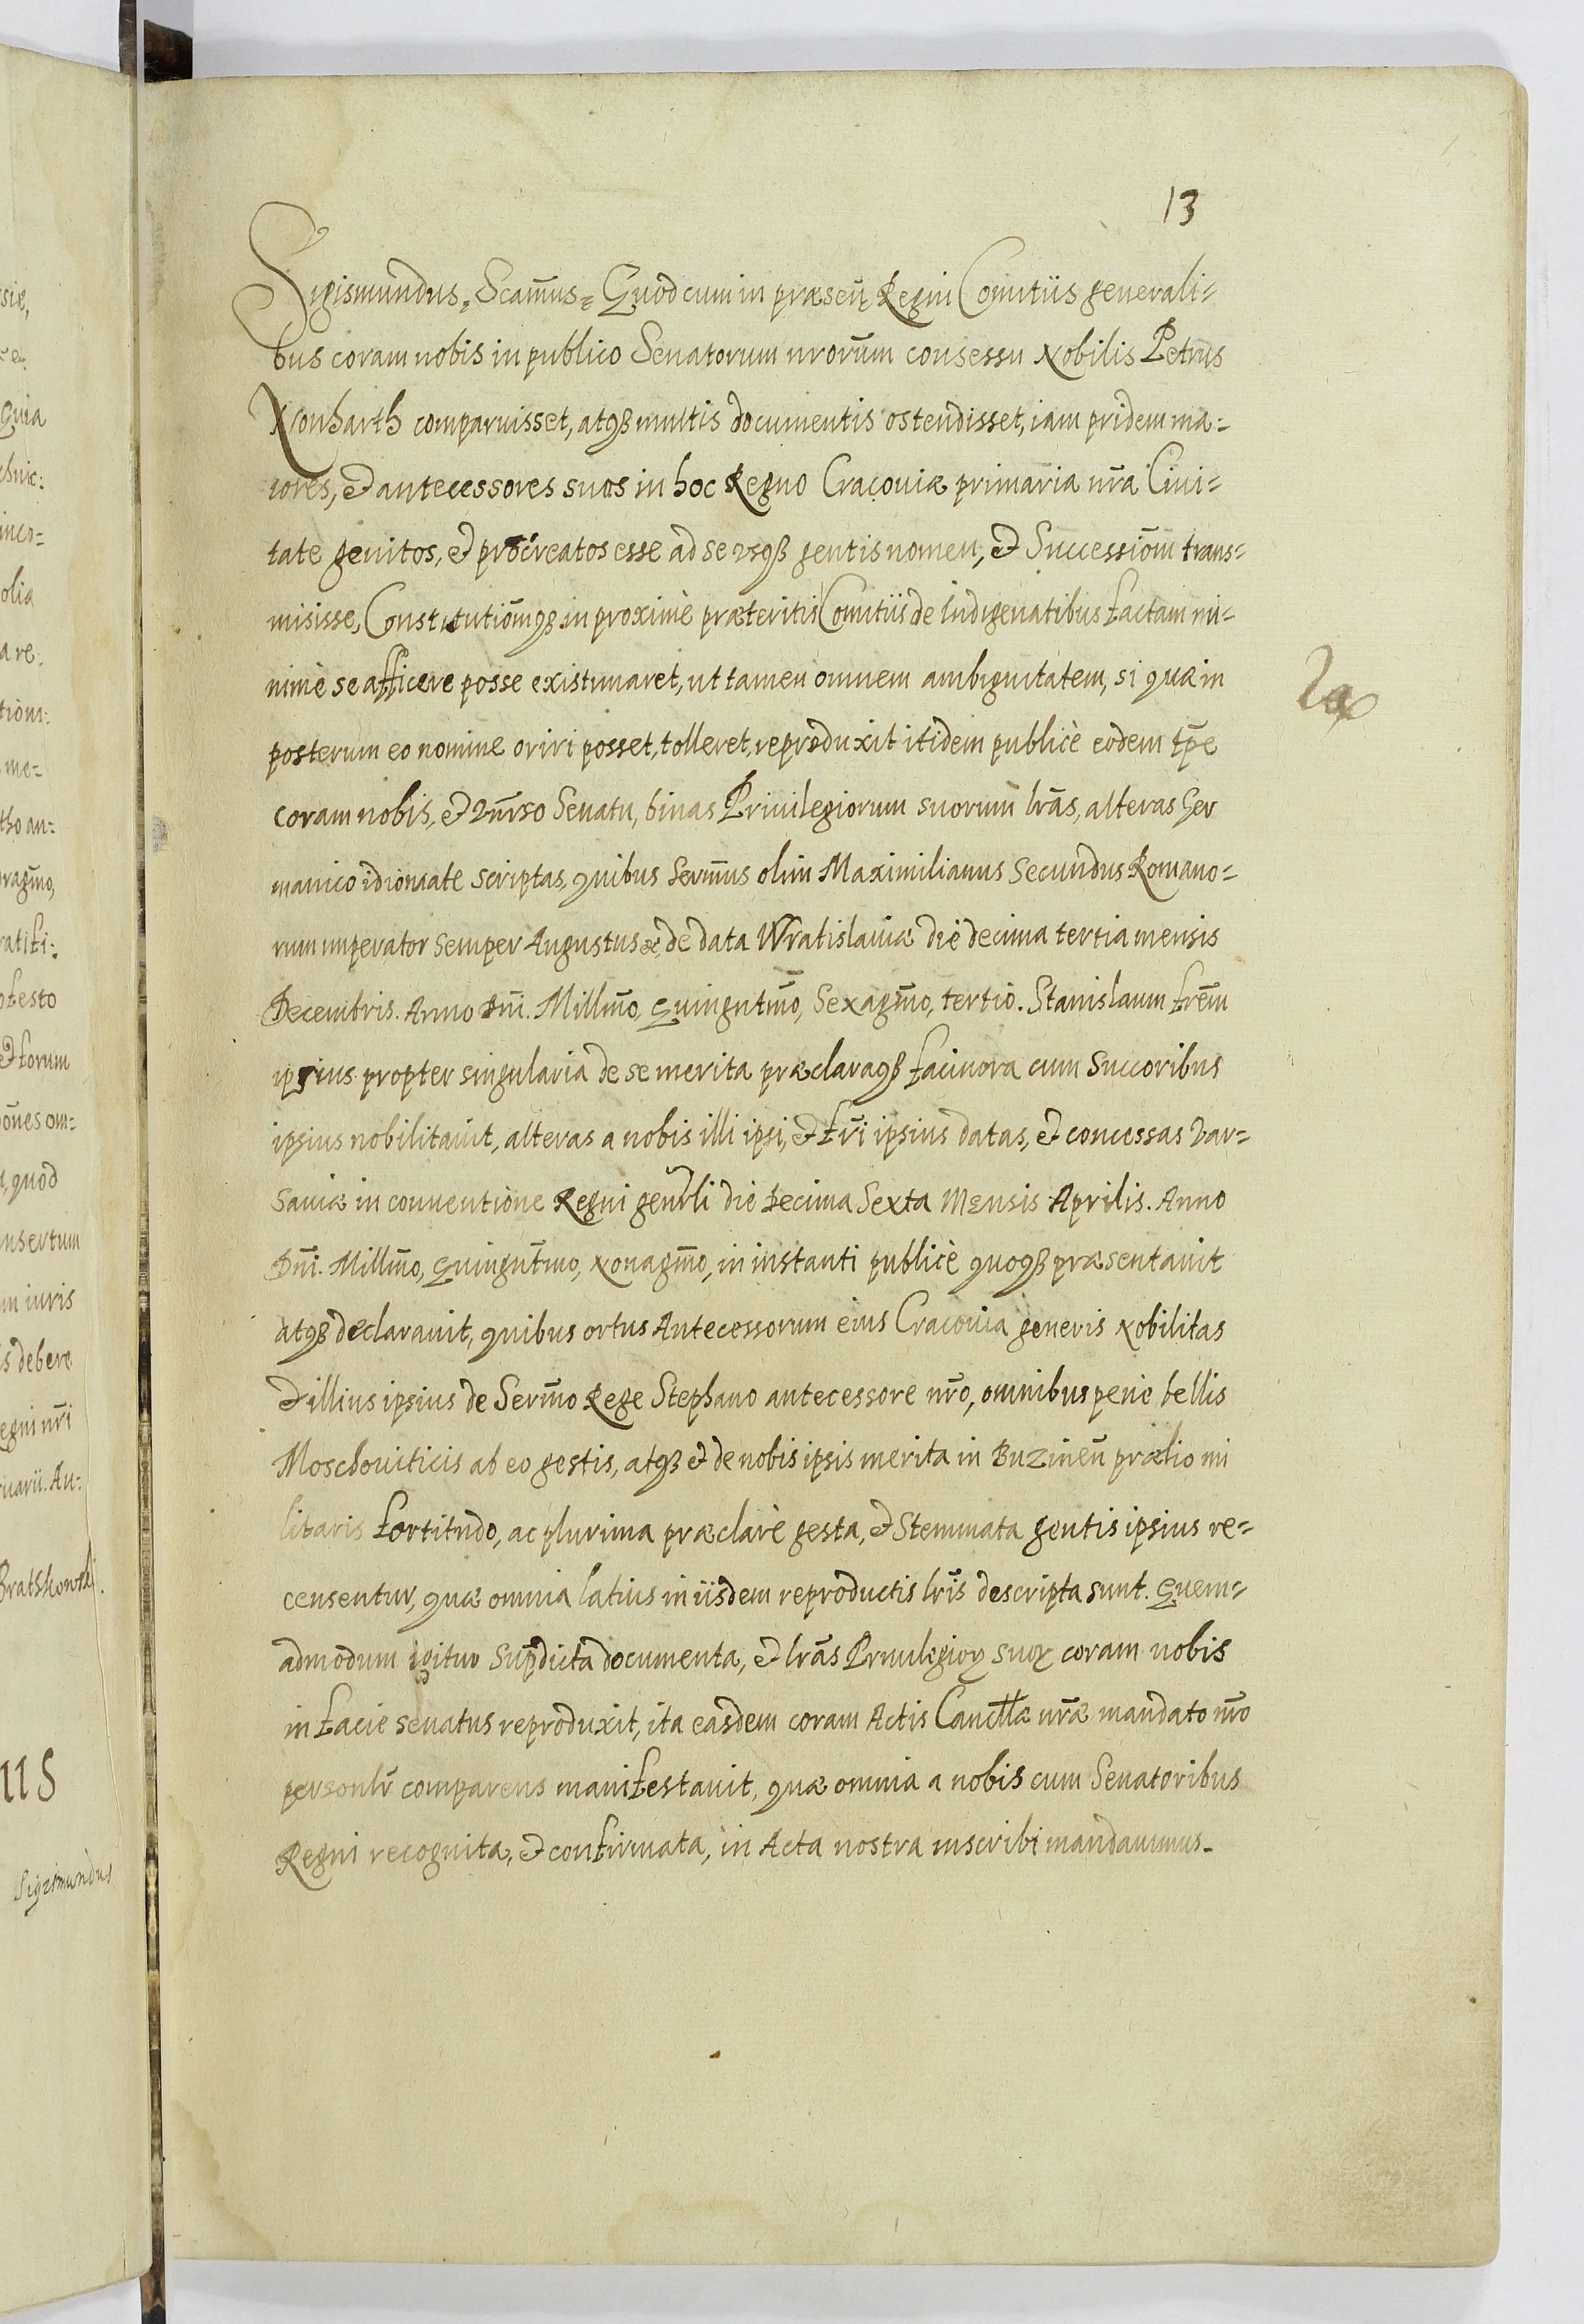 13
Sigismundus, Scam̃us, Quod cum in præsen̄ Regni Comitiis generali=
bus coram nobis in publico Senatorum nrorum̄ consessu Nobilis Petrus
Nonharth comparuisset, atq3 multis documentis ostendisset, iam pridem ma=
iores, et antecessores suos in hoc Regno Cracouiæ primaria nr̄a Ciui=
tate genitos, et procreatos esse ad se vsq3 gentis nomen, et Successiōm trans=
misisse, Constitutiōmq3 in proximè præteritis Comitiis de Indigenatibus factam mi=
nimè se afficere posse existimaret, ut tamen omnem ambiguitatem, si quæ in
posterum eo nomine oriri posset, tolleret, reproduxit itidem publicè eodem tp̄e
coram nobis, et Vnīrso Senatu, binas Priuilegiorum suorum lrās, alteras Ger
manico idiomate scriptas, quibus Serm̄us olim Maximilianus Secundus Romano=
rum imperator semper Augustus &, de data Wratislauiæ die decima tertia mensis
Decembris. Anno Dni. Millm̄o, Quingntm̄o, Sexagm̄o, tertio. Stanislaum frēm
ipsius propter singularia de se merita præclaraq3 facinora cum Succoribus
ipsius nobilitauit, alteras a nobis illi ipsi, et frī ipsius datas, et concessas Var=
sauiæ in conuentione Regni genrli die Decima Sexta Mensis Aprilis. Anno
Dni. Millm̄o, Quingnt̄mo, Nonagm̄o, in instanti publicè quoq3 præsentauit
atq3 declarauit, quibus ortus Antecessorum eius Cracouia generis Nobilitas
et illius ipsius de Serm̄o Rege Stephano antecessore nr̄o, omnibus penè bellis
Moschouiticis ab eo gestis, atq3 et de nobis ipsis merita in Buzinen̄ prælio mi
litaris fortitudo, ac plurima præclarè gesta, et Stemmata gentis ipsius re=
censentur, quæ omnia latius in iisdem reproductis lrīs descripta sunt. Quem=
admodum igitur Supdicta documenta, et lrās Priuilegioꝝ suoꝝ coram nobis
in facie senatus reproduxit, ita easdem coram Actis Cancllæ nr̄æ mandato nr̄o
personlr̄ comparens manifestauit, quæ omnia a nobis cum Senatoribus
Regni recognita, et confirmata, in Acta nostra inscribi mandauimus.